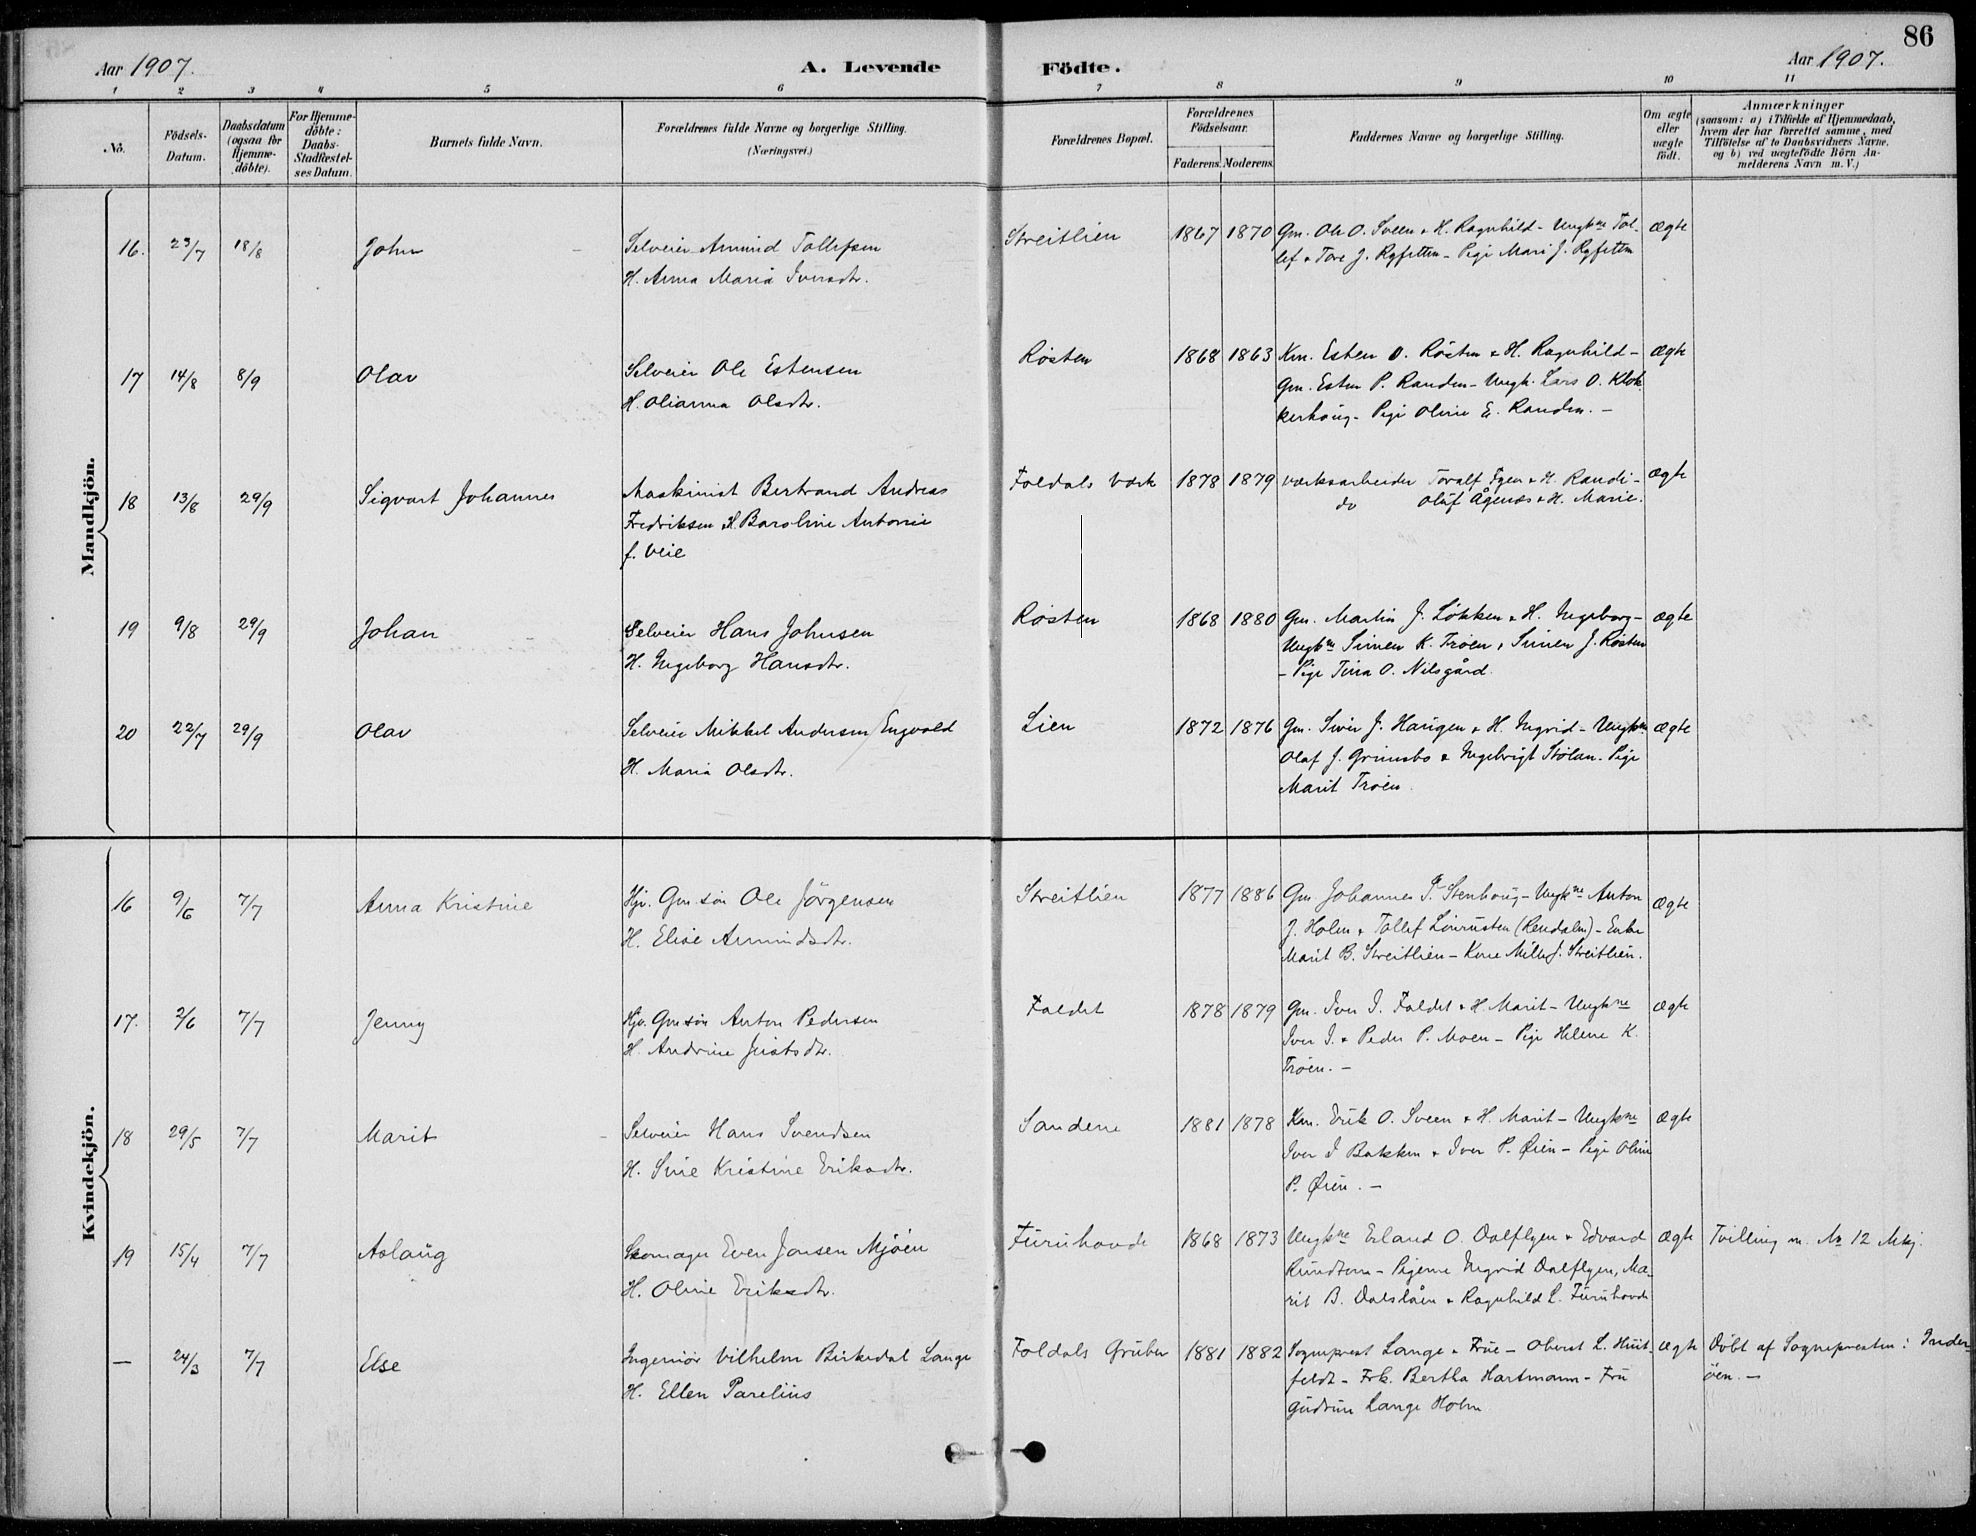 86
Aar 1907.
A. Levende Födte.
Aar 1907.
1 2 3 4 5 6 7 8 9 10 11
No.
Födsels-
Datum.
Daabsdatum
(ogsaa for
Hjemme-
döbte).
For Hjemme-
döbte:
Daabs-
Stadfæstel-
ses Datum.
Barnets fulde Navn.
Forældrenes fulde Navne og borgerlige Stilling.
(Næringsvei.)
Forældrenes Bopæl.
Forældrenes
Födselsaar.
Faderens. Moderens.
Faddernes Navne og borgerlige Stilling.
Om ægte
eller
uægte
født.
Anmærkninger
(saasom: a) i Tilfælde af Hjemmedaab,
hvem der har forrettet samme, med
Tilföielse af to Daabsvidners Navne,
og b) ved uægtefödte Börn An-
melderens Navn m. V.)
Mandkjön.
16. 23/7 18/8 John
Selveier Amund Tollefsen
H. Anna Maria Iversdtr.
Streitlien 1867 1870
Gm. Ole O. Sveen & H. Ragnhild - Ungkne Tol-
lef & Tore J. Ryfetten - Pige Mari J. Ryfetten
Ægte
17 14/8 8/9 Olav
Selveier Ole Estensen
H. Olianna Olsdtr.
Røsten 1868 1863
Km. Esten O. Røsten & H. Ragnhild -
Gm. Esten P. Randen - Ungk. Lars O. Klok-
kerhaug - Pige Oline E. Randen. -
Ægte
18 13/8 29/9 Sigvart Johannes
Maskinist Bertrand Andreas
Fredriksen & H. Baroline Antonie
f. Veie
Foldals Værk 1878 1879
Værksarbeider Toralf Tgen & H. Randi -
do Oluf Ågenæs & H. Marie.
Ægte
19 9/8 29/9 Johan
Selveier Hans Johnsen
H. Ingeborg Hansdtr.
Røsten 1868 1880
Gm. Martin J. Løkken & H. Ingeborg -
Ungkne Simen K. Trøen & Simen J. Røsten
- Pige Tina O. Nilsgård.
Ægte
20 22/7 29/9 Olav
Selveier Mikkel Andersen Engvold
H. Maria Olsdtr.
Lien 1872 1876
Gm. Siver J. Haugen & H. Ingrid - Ungkne
Olaf J. Grimsbo & Ingebrigt Stølan. Pige
Marit Trøen.
Ægte
Kvindekjön.
16 9/6 7/7 Anna Kristine
Hjv. Gm. søn Ole Jörgensen
H. Elise Amundsdtr.
Streitlien 1877 1886
Gm Johannes P. Stenhoug - Ungkne Anton
J. Holen & Tollef Lonrusten (Rendalen) - Enke
Marit B. Streitlien - Kone Mille J. Streitlien.
Ægte
17. 2/6 7/7 Jenny
Hjv. Gm søn Anton Pedersen
H. Andrine Justsdtr.
Foldet 1878 1879
Gm. Iver I. Foldet & H. Marit - Ungkne
Iver I. & Peder P. Moen - Pige Helene K.
Trøen. -
Ægte
18 29/5 7/7 Marit
Selveier Hans Svendsen
H. Sine Kristine Eriksdtr.
Sandene 1881 1878
Km. Erik O. Sveen & H. Marit - Ungkne
Iver I Bakken & Iver P. Øien - Pige Oline
P. Øien. -
Ægte
19 15/4 7/7 Aslaug
Skomager Even Jonsen Mjøen
H. Oline Eriksdtr.
Furuhovde 1868 1873
Ungkne Erland O. Dalflyen & Edvard
Rundtom - Pigerne Ingrid Dalflyen, Ma-
rit B. Dalslåen & Ragnhild L. Furuhovde
Ægte
Tvilling m. No 12 Mkj.
- 24/3 7/7 Else
Ingeniör Vilhelm Birkedal Lange
H. Ellen Parelius
Foldals Gruber 1881 1882
Sogneprest Lange & Frue - Oberst L. Huit-
feldt - Frk. Bertha Hartmann - Fru
Gudrun Lange Holm
Ægte
Döbt af Sognepresten i Inder-
öen. -